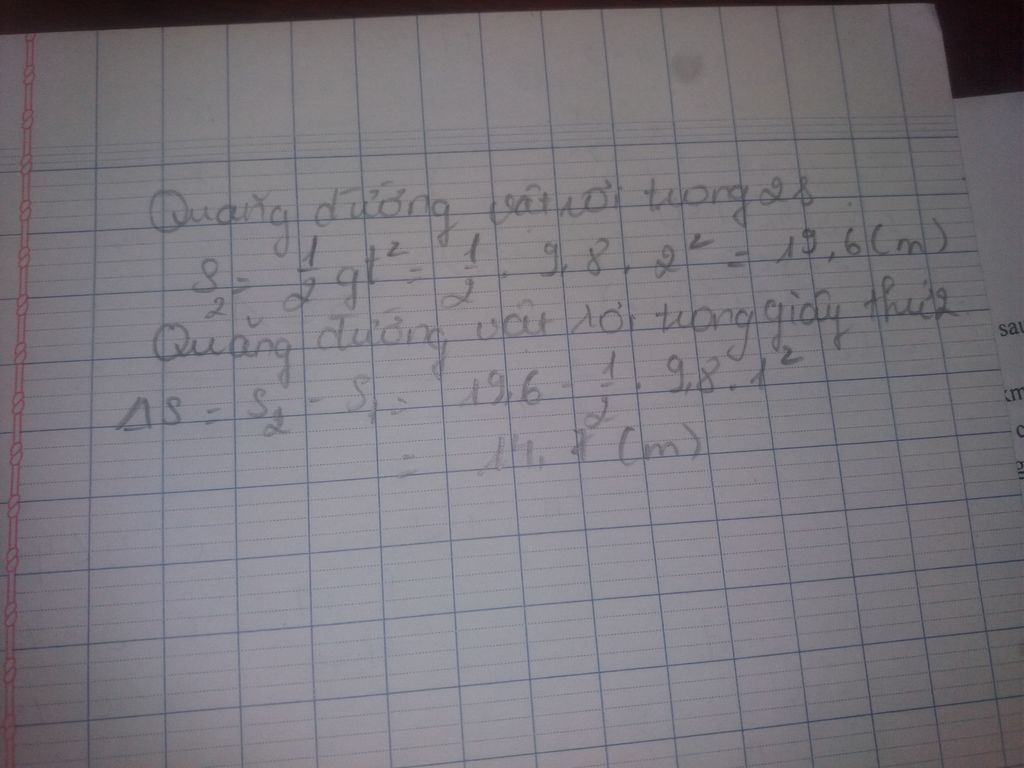 Quãng đường vật rơi trong 2s
S₂ = 1/2 gt² = 1/2 . 9,8 . 2² = 19,6 (m)
Quãng đường vật rơi trong giây thứ 2
ΔS = S₂ - S₁ = 19,6 - 1/2 . 9,8 . 1²
= (m)
sau
km